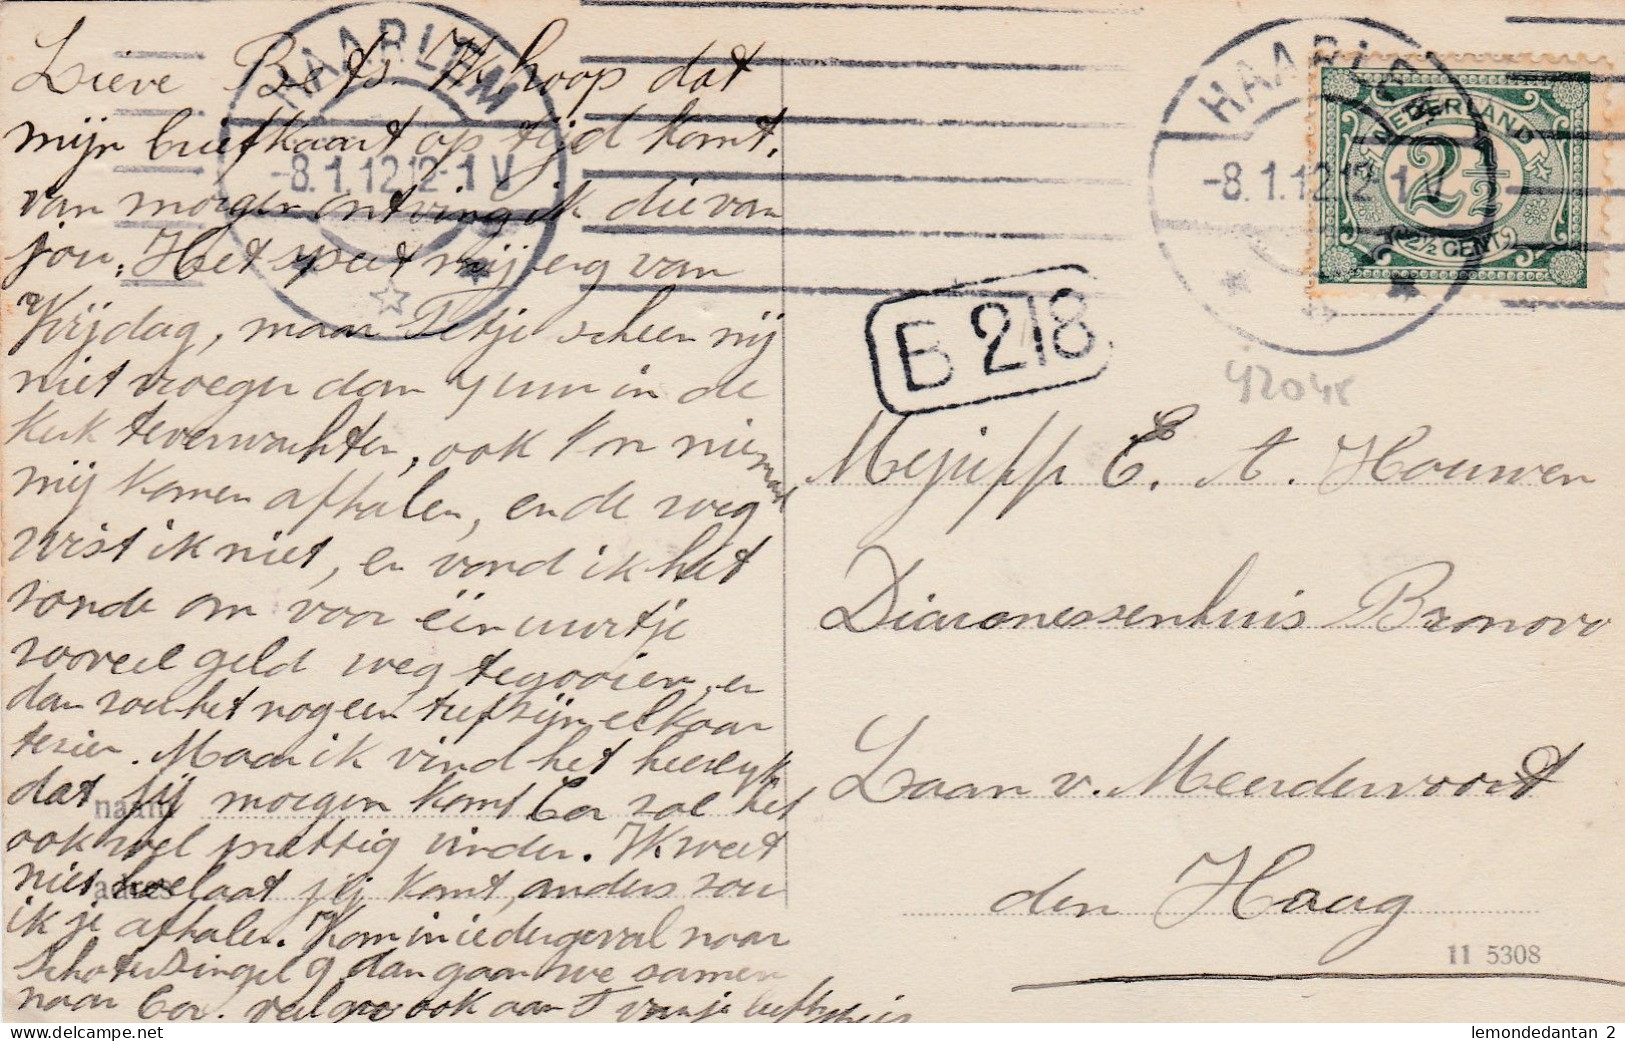 Lieve Bets. Ik hoop dat
mijn briefkaart op tijd komt,
van morgen ontving ik die van
jou. Het speet mij erg van
Vrijdag, maar Tetje scheen mij
niet vroeger dan 4 uur in de
kerk te verwachten, ook kon niemand
mij komen afhalen, en de weg
wist ik niet, en vond ik het
zonde om voor één uurtje
zooveel geld weg te gooien, en
dan zou het nog een tref zijn elkaar
te zien. Maar ik vind het heerlijk
dat jij morgen komt Cor zal het
ook wel prettig vinden. Ik weet
niet hoe laat jij komt, anders zou
ik je afhalen. Kom in iedergeval naar
Schotersingel 9 dan gaan we samen
naar Cor. veel gr. ook aan T van je
naam
adres
HAARLEM
-8.1.12 12-1 V
HAARLEM
-8.1.12 12-1 V
NEDERLAND
2½
2½ CENT
B 218
42048
Mejuff E. A. Houwen
Diaconessenhuis Bronovo
Laan v. Meerdervoort
den Haag
11 5308
lemondedantan 2